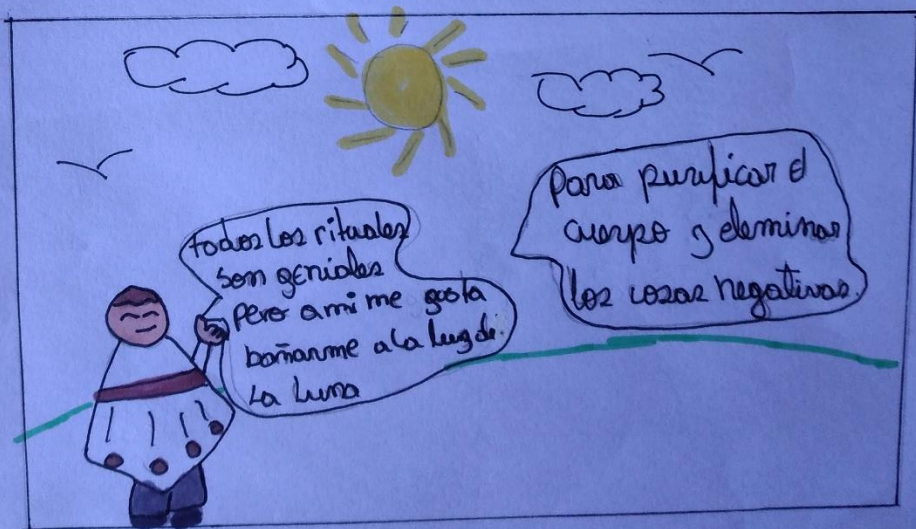 todos los rituales
son geniales
pero a mi me gusta
bañarme a la luz de
la luna
Para purificar el
cuerpo y eleminar
los cosas negativas.